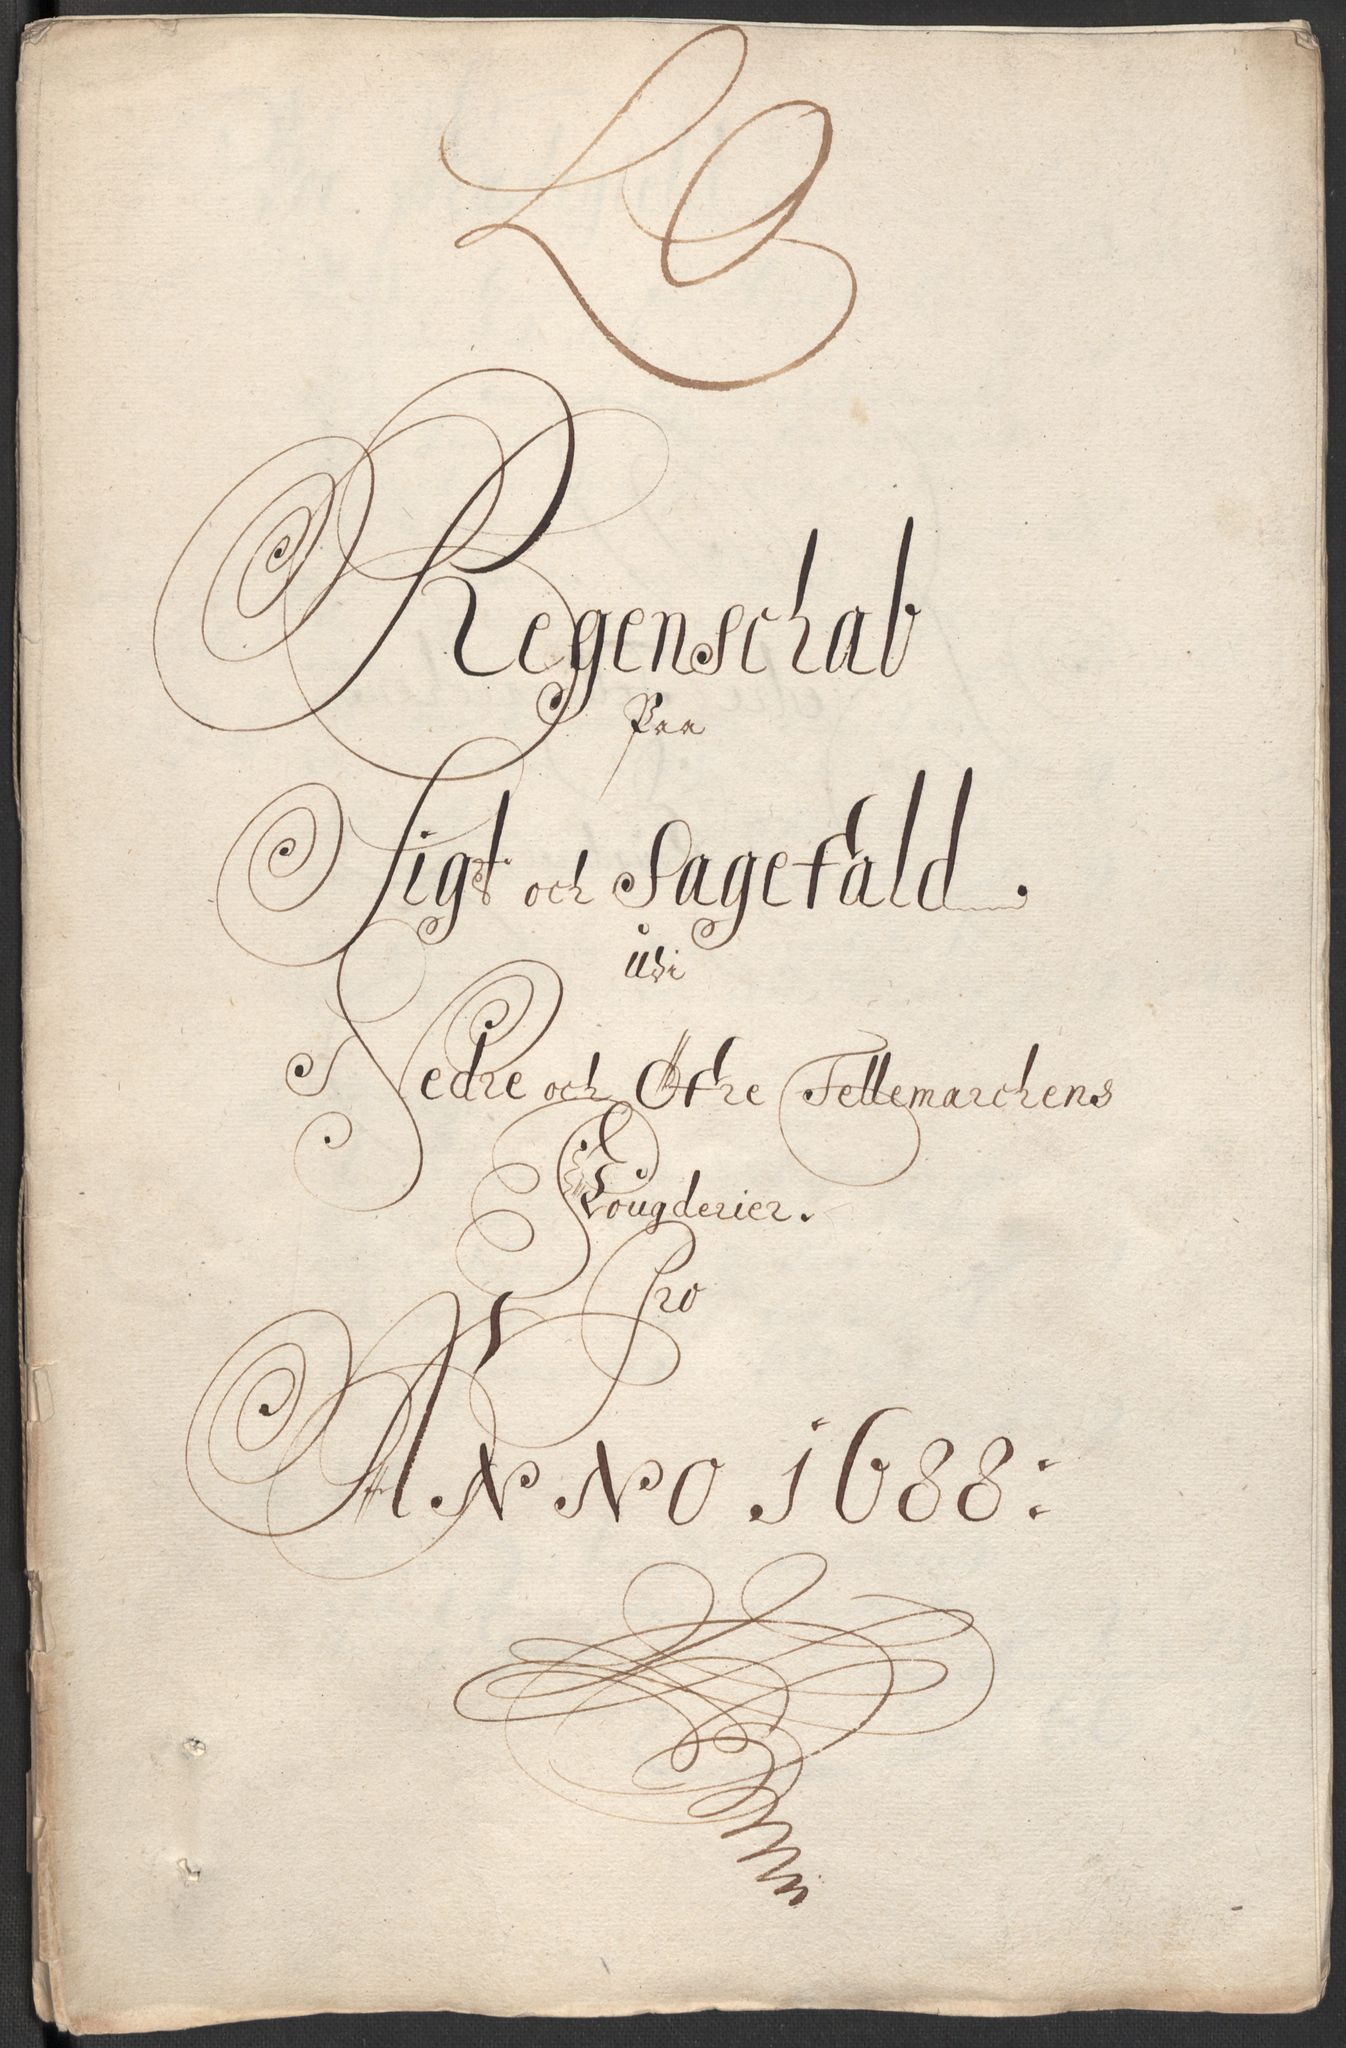 Regenschab
Paa
Sigt och Sagefald.
udi
Nedre och Øfre Tellemarchens
Fougderier.
Pro
ANNO 1688: